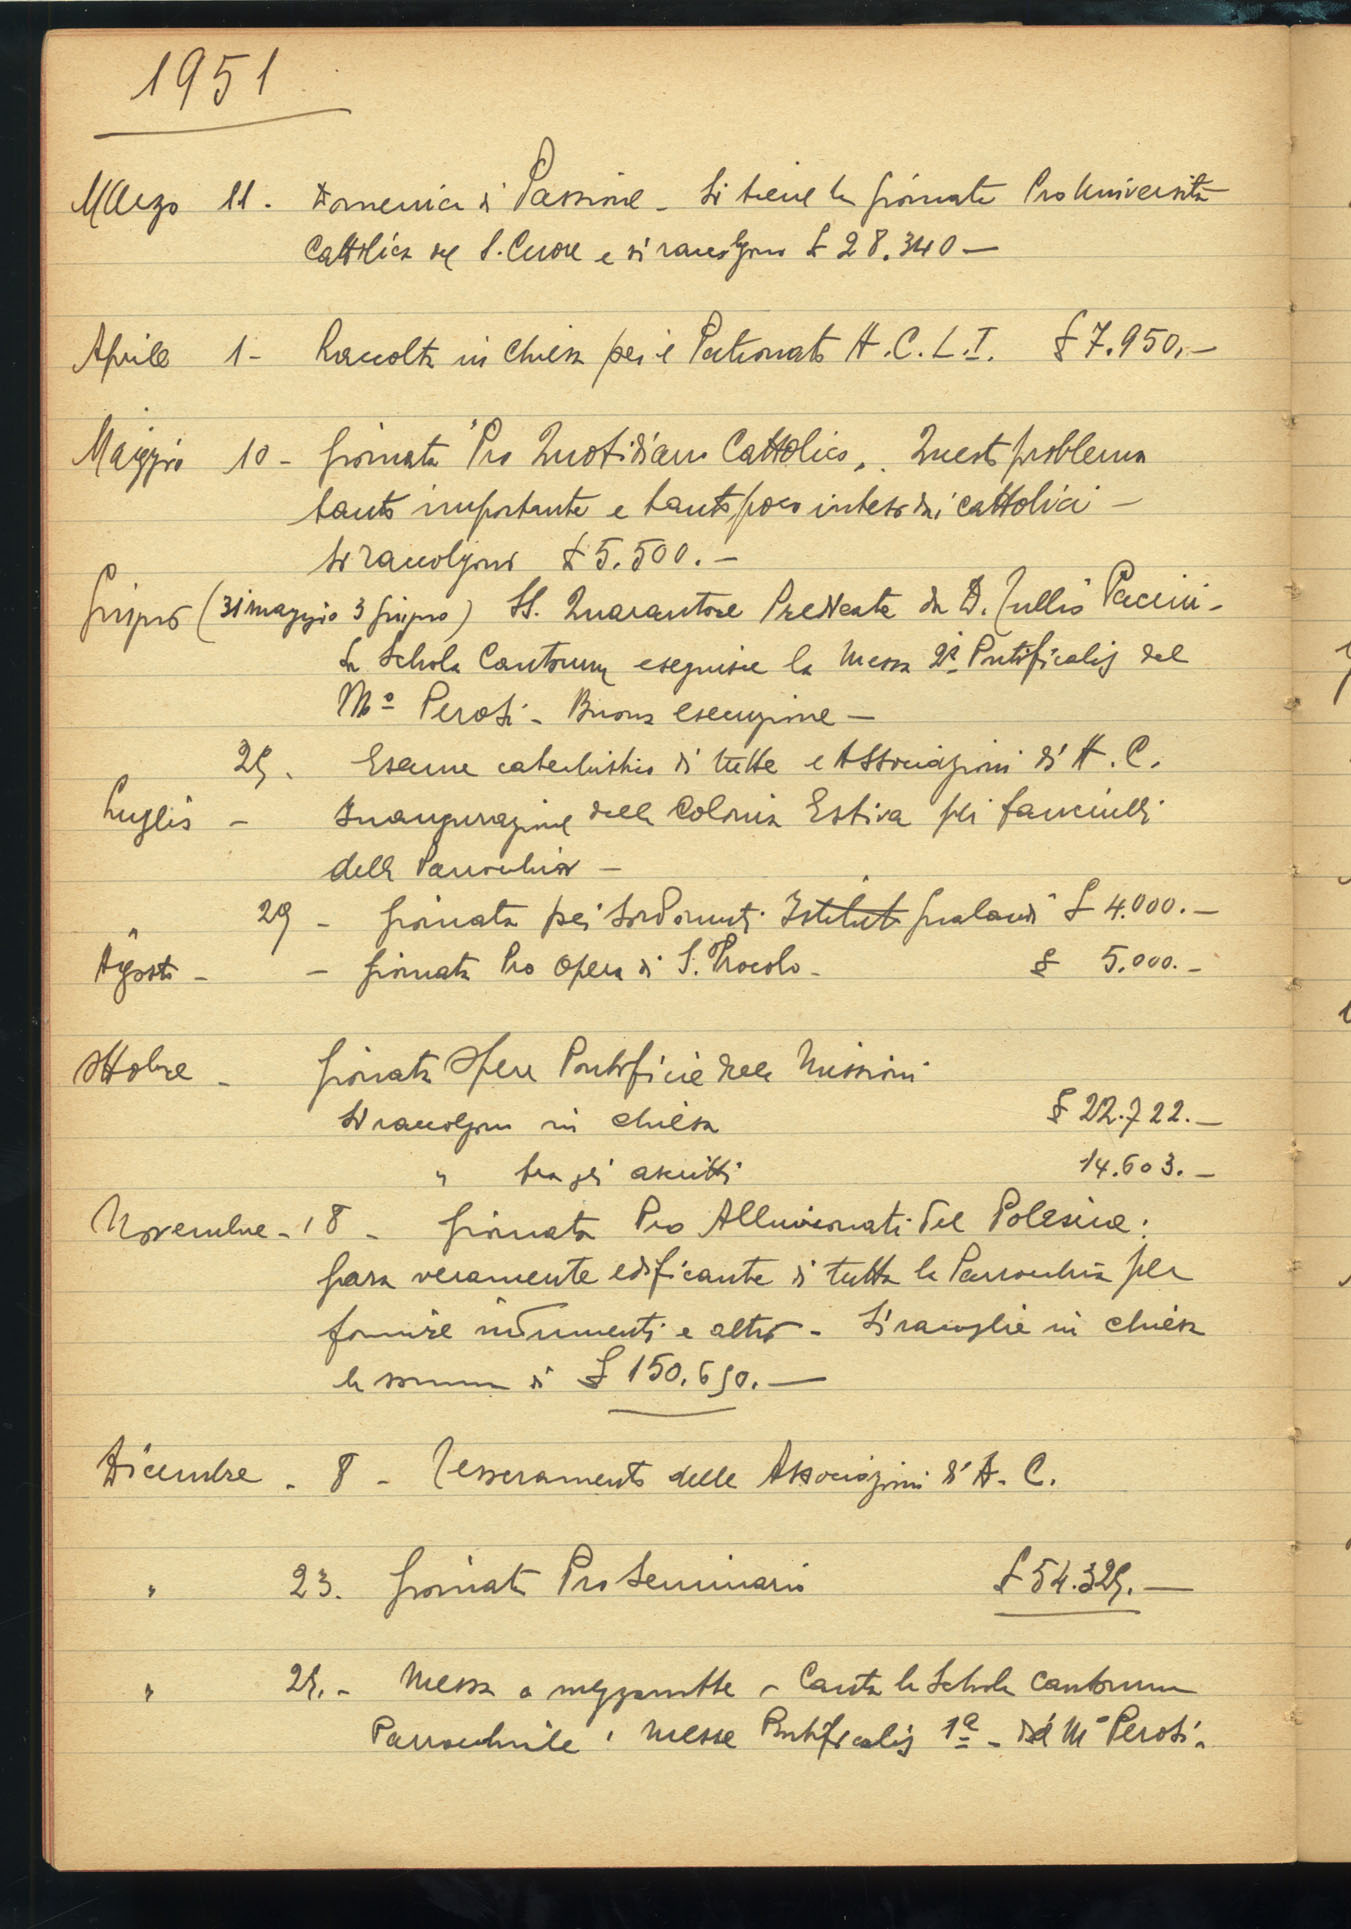 1951
Marzo 11. Domenica di Passione - Si tiene la giornata Pro Università
Cattolica del S. Cuore e si raccolgono £ 28.340 —
Aprile 1- Raccolta in Chiesa per i Patronato A.C.L.I. £ 7.950.-
Maggio 10 - Giornata "Pro Quotidiano Cattolico. Questo problema
tanto importante e tanto poco inteso dai cattolici -
Si raccolgono £ 5.500.-
Giugno (31 maggio 3 giugno) SS. Quarantore Predicate da D. Tullio Paccini -
La Schola Cantorum eseguisce la Messa 2ª Pontificalis del
Mº Perosi - Buona esecuzione —
25. Esame catechistico di tutte le Associazioni di A.C.
Luglio - Inaugurazione della Colonia Estiva per fanciulli
della Parrocchia -
" 29 - Giornata pei Sordomuti Istituto Gualandi £ 4.000.-
Agosto - - Giornata Pro Opera di S. Procolo - £ 5.000.-
Ottobre - Giornata Opere Pontificie delle Missioni
Si raccolgono in chiesa £ 22.722.-
" tra gli ascritti 14.603.-
Novembre - 18 - Giornata Pro Alluvionati del Polesine:
gara veramente edificante di tutta la Parrocchia per
fornire indumenti e altro - Si raccoglie in chiesa
la somma di £ 150.650.—
Dicembre - 8 - Tesseramento delle Associazioni di A.C.
" 23. Giornata Pro Seminario £ 54.325.—
" 25.- Messa a mezzanotte - Canta la Schola cantorum
Parrocchiale: Messe Pontificalis 1ª - del Mº Perosi -